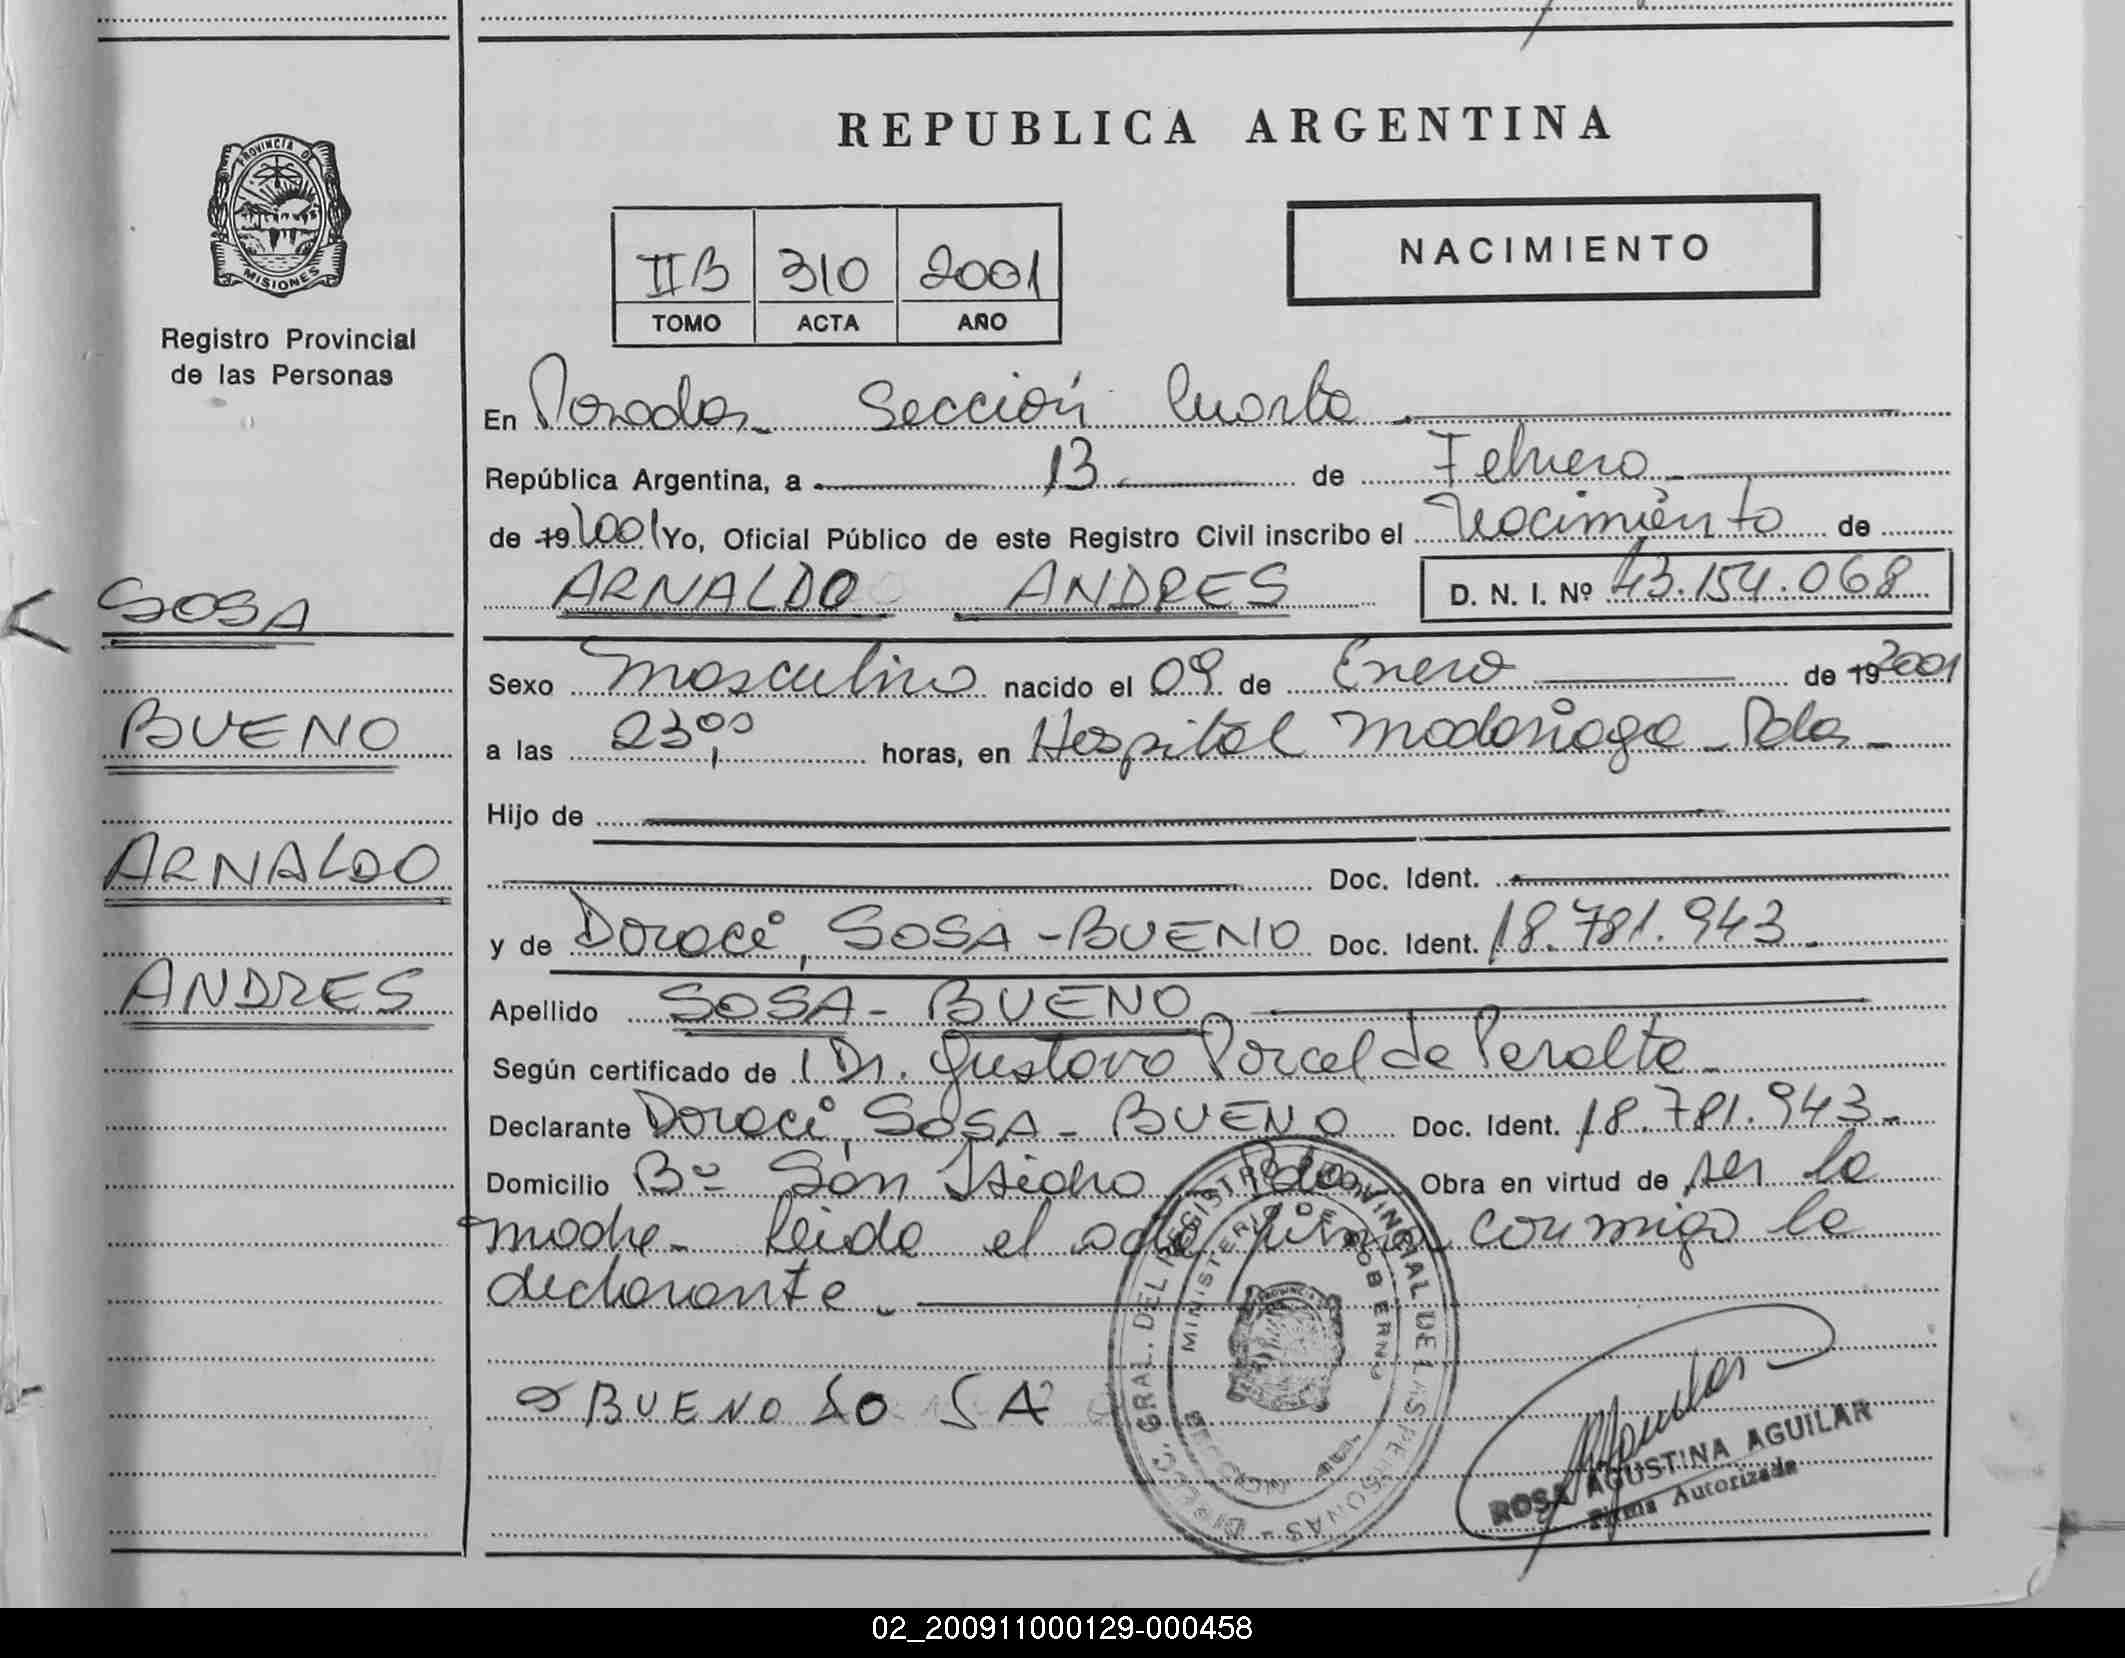 REPUBLICA ARGENTINA
PROVINCIA DE MISIONES
Registro Provincial
de las Personas
II B 310 2001
TOMO ACTA AÑO
NACIMIENTO
En Posadas Sección Cuarta
República Argentina, a 13 de Febrero
de 19 2001 Yo, Oficial Público de este Registro Civil inscribo el Nacimiento de
ARNALDO ANDRES D. N. I. Nº 43.154.068
SOSA
BUENO
ARNALDO
ANDRES
Sexo Masculino nacido el 09 de Enero de 19 2001
a las 23,00 horas, en Hospital Madariaga - Pdas -
Hijo de
Doc. Ident.
y de Doraci, SOSA - BUENO Doc. Ident. 18.781.943.
Apellido SOSA - BUENO
Según certificado de l Dr. Gustavo Porcel de Peralta
Declarante Doraci, SOSA - BUENO Doc. Ident. 18.781.943.-
Domicilio Bº San Isidro Pdas Obra en virtud de ser la
madre - leida el acta firma conmigo la
declarante.
BUENO SO SA
DIRECC. GRAL. DEL REGISTRO PROVINCIAL DE LAS PERSONAS -
MINISTERIO DE GOBIERNO
ROSA AGUSTINA AGUILAR
Firma Autorizada
02_200911000129-000458